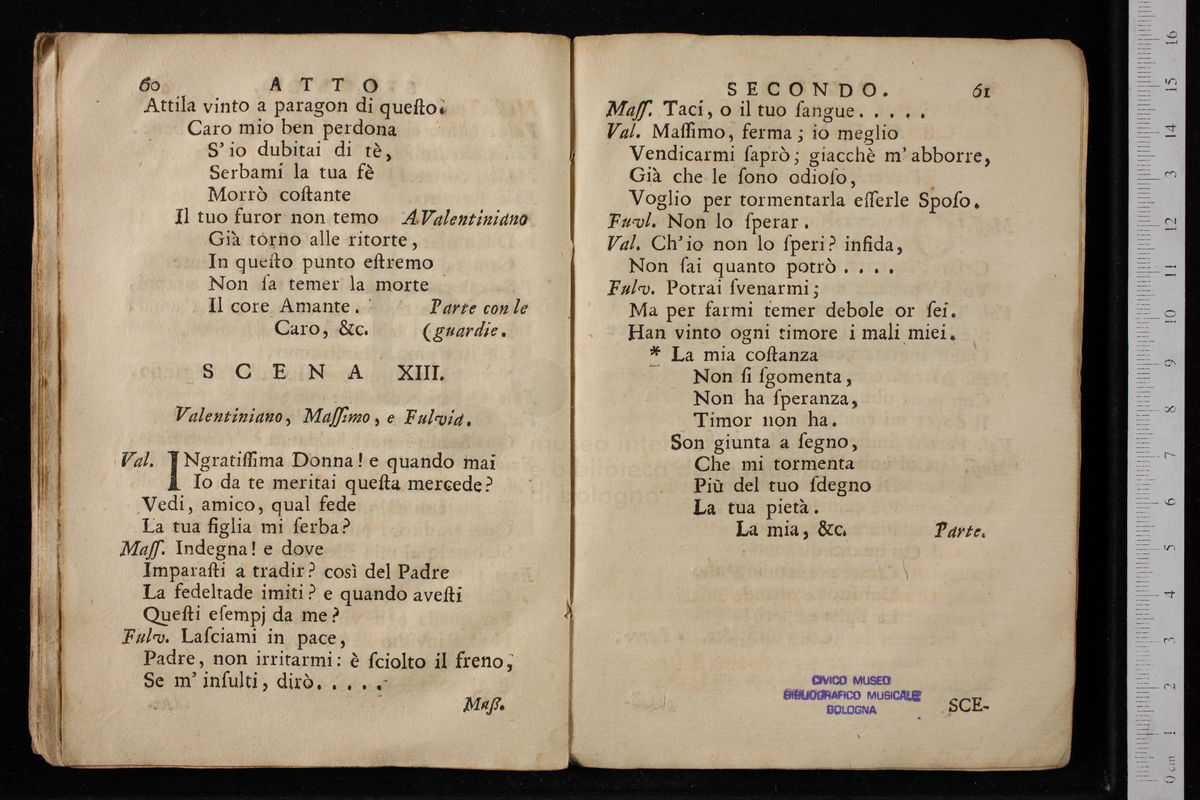 60 ATTO
Attila vinto a paragon di queſto.
Caro mio ben perdona
S' io dubitai di tè,
Serbami la tua fè
Morrò coſtante
Il tuo furor non temo A Valentiniano
Già torno alle ritorte,
In queſto punto eſtremo
Non ſa temer la morte
Il core Amante. Parte con le
Caro, &c. (guardie.
SCENA XIII.
Valentiniano, Maſſimo, e Fulvia.
Val. INgratiſſima Donna! e quando mai
Io da te meritai queſta mercede?
Vedi, amico, qual fede
La tua figlia mi ſerba?
Maſſ. Indegna! e dove
Imparaſti a tradir? così del Padre
La fedeltade imiti? e quando aveſti
Queſti eſempj da me?
Fulv. Laſciami in pace,
Padre, non irritarmi: è ſciolto il freno,
Se m' inſulti, dirò. . . . .
Maß.
SECONDO. 61
Maſſ. Taci, o il tuo ſangue. . . . .
Val. Maſſimo, ferma; io meglio
Vendicarmi ſaprò; giacchè m' abborre,
Già che le ſono odioſo,
Voglio per tormentarla eſſerle Spoſo.
Fuvl. Non lo ſperar.
Val. Ch' io non lo ſperi? infida,
Non ſai quanto potrò . . . .
Fulv. Potrai ſvenarmi;
Ma per farmi temer debole or ſei.
Han vinto ogni timore i mali miei.
* La mia coſtanza
Non ſi ſgomenta,
Non ha ſperanza,
Timor non ha.
Son giunta a ſegno,
Che mi tormenta
Più del tuo ſdegno
La tua pietà.
La mia, &c. Parte.
CIVICO MUSEO
BIBLIOGRAFICO MUSICALE
BOLOGNA
SCE-
0 cm 1 2 3 4 5 6 7 8 9 10 11 12 13 14 15 16